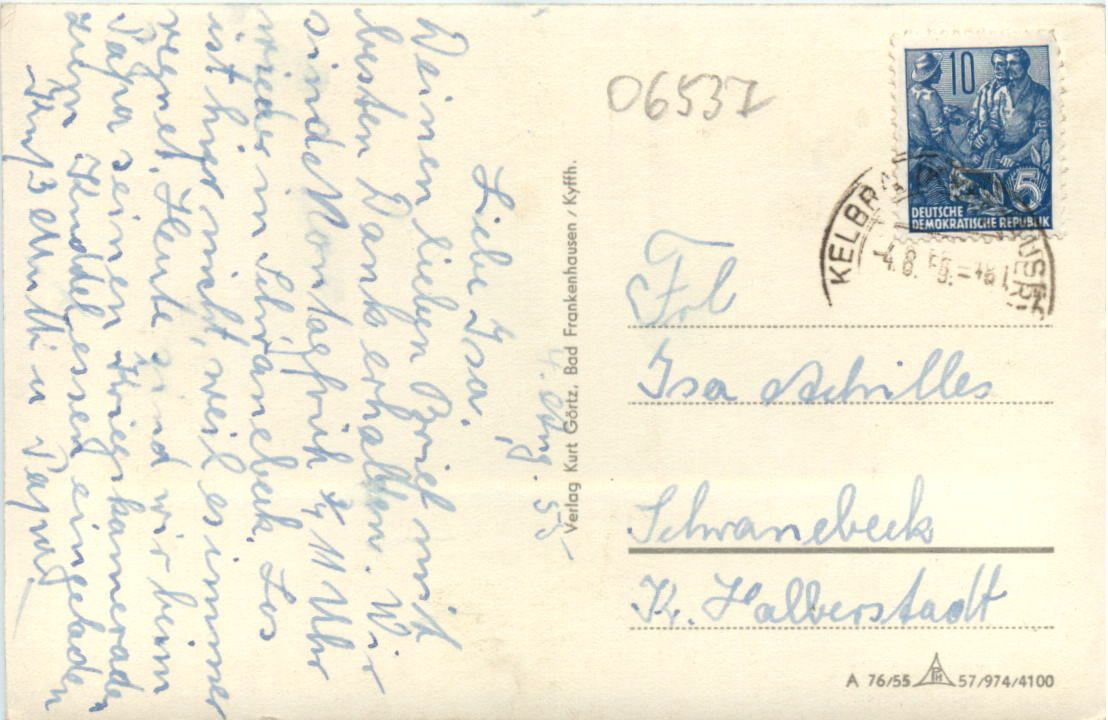 4. Aug. 55
Liebe Isa.
Deinen lieben Brief mit
besten Dank erhalten. Wir
sind Montagfrüh 11 Uhr
wieder in Schwanebeck. Los
ist hier nicht, weil es immer
regnet. Heute sind wir beim
Papa seinen Kriegskameraden
zum essen eingeladen
Gruß Mutti u Papa
Verlag Kurt Görtz, Bad Frankenhausen / Kyffh.
06537
10
5
DEUTSCHE
DEMOKRATISCHE REPUBLIK
KELBRA
4.8.55.-18
Frl
Isa Achilles
Schwanebeck
Kr. Halberstadt
A 76/55 57/974/4100